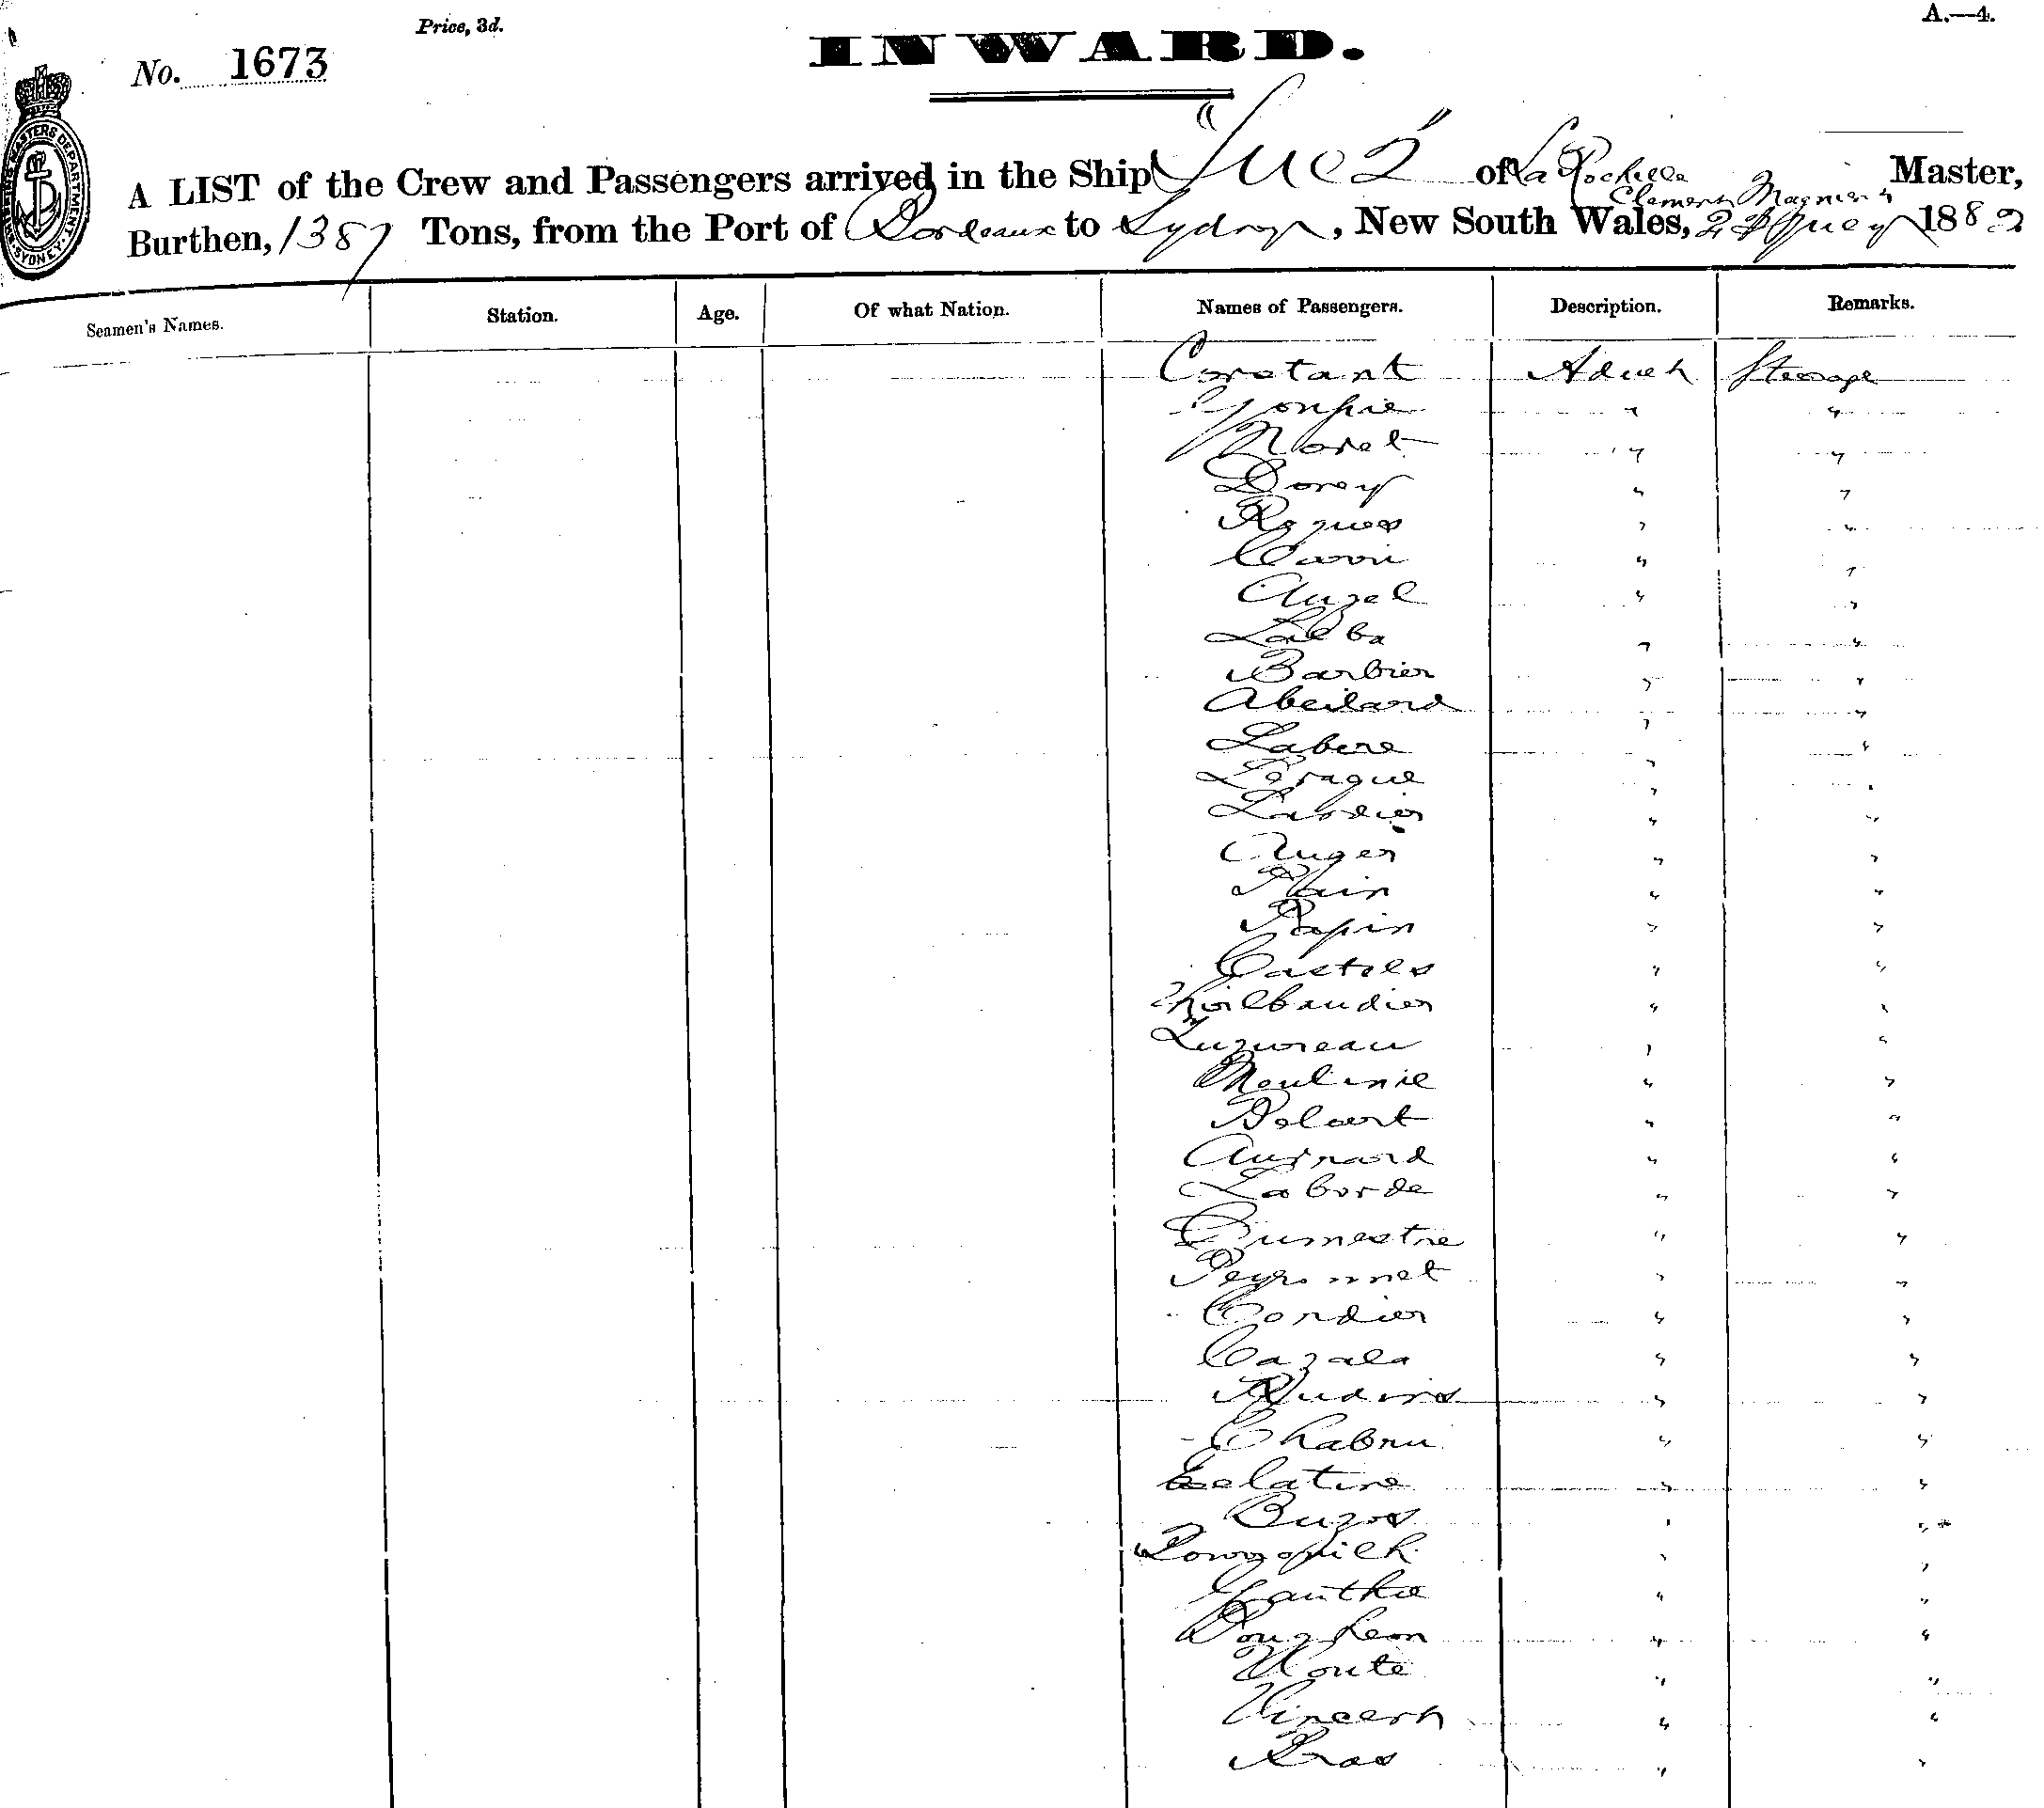 Price, 3d.
A.—4.
No. 1673
INWARD.
SHIPPING MASTERS DEPARTMENT SYDNEY
A LIST of the Crew and Passengers arrived in the Ship "Suez" of La Rochelle Master,
Burthen, 1387 Tons, from the Port of Bordeaux to Sydney, New South Wales, 1882
Seamen's Names. Station. Age. Of what Nation. Names of Passengers. Description. Remarks.
Constant Adult Steerage
Gonpie " "
Noret " "
Dorey " "
Roques " "
" "
Auzel " "
Lalba " "
Barbier " "
Abeilard " "
Labere " "
Leragve " "
Lardier " "
Auger " "
Plain " "
Papin " "
Castels " "
Thoilbaudier " "
Luzureau " "
Moulinie " "
Delaert " "
" "
Laborde " "
Dumestre " "
Peyronnet " "
Cordier " "
Cazala " "
" "
Chabru " "
Gelatine " "
Buzos " "
" "
Gauthie " "
" "
Noute " "
Vincent " "
Pras " "